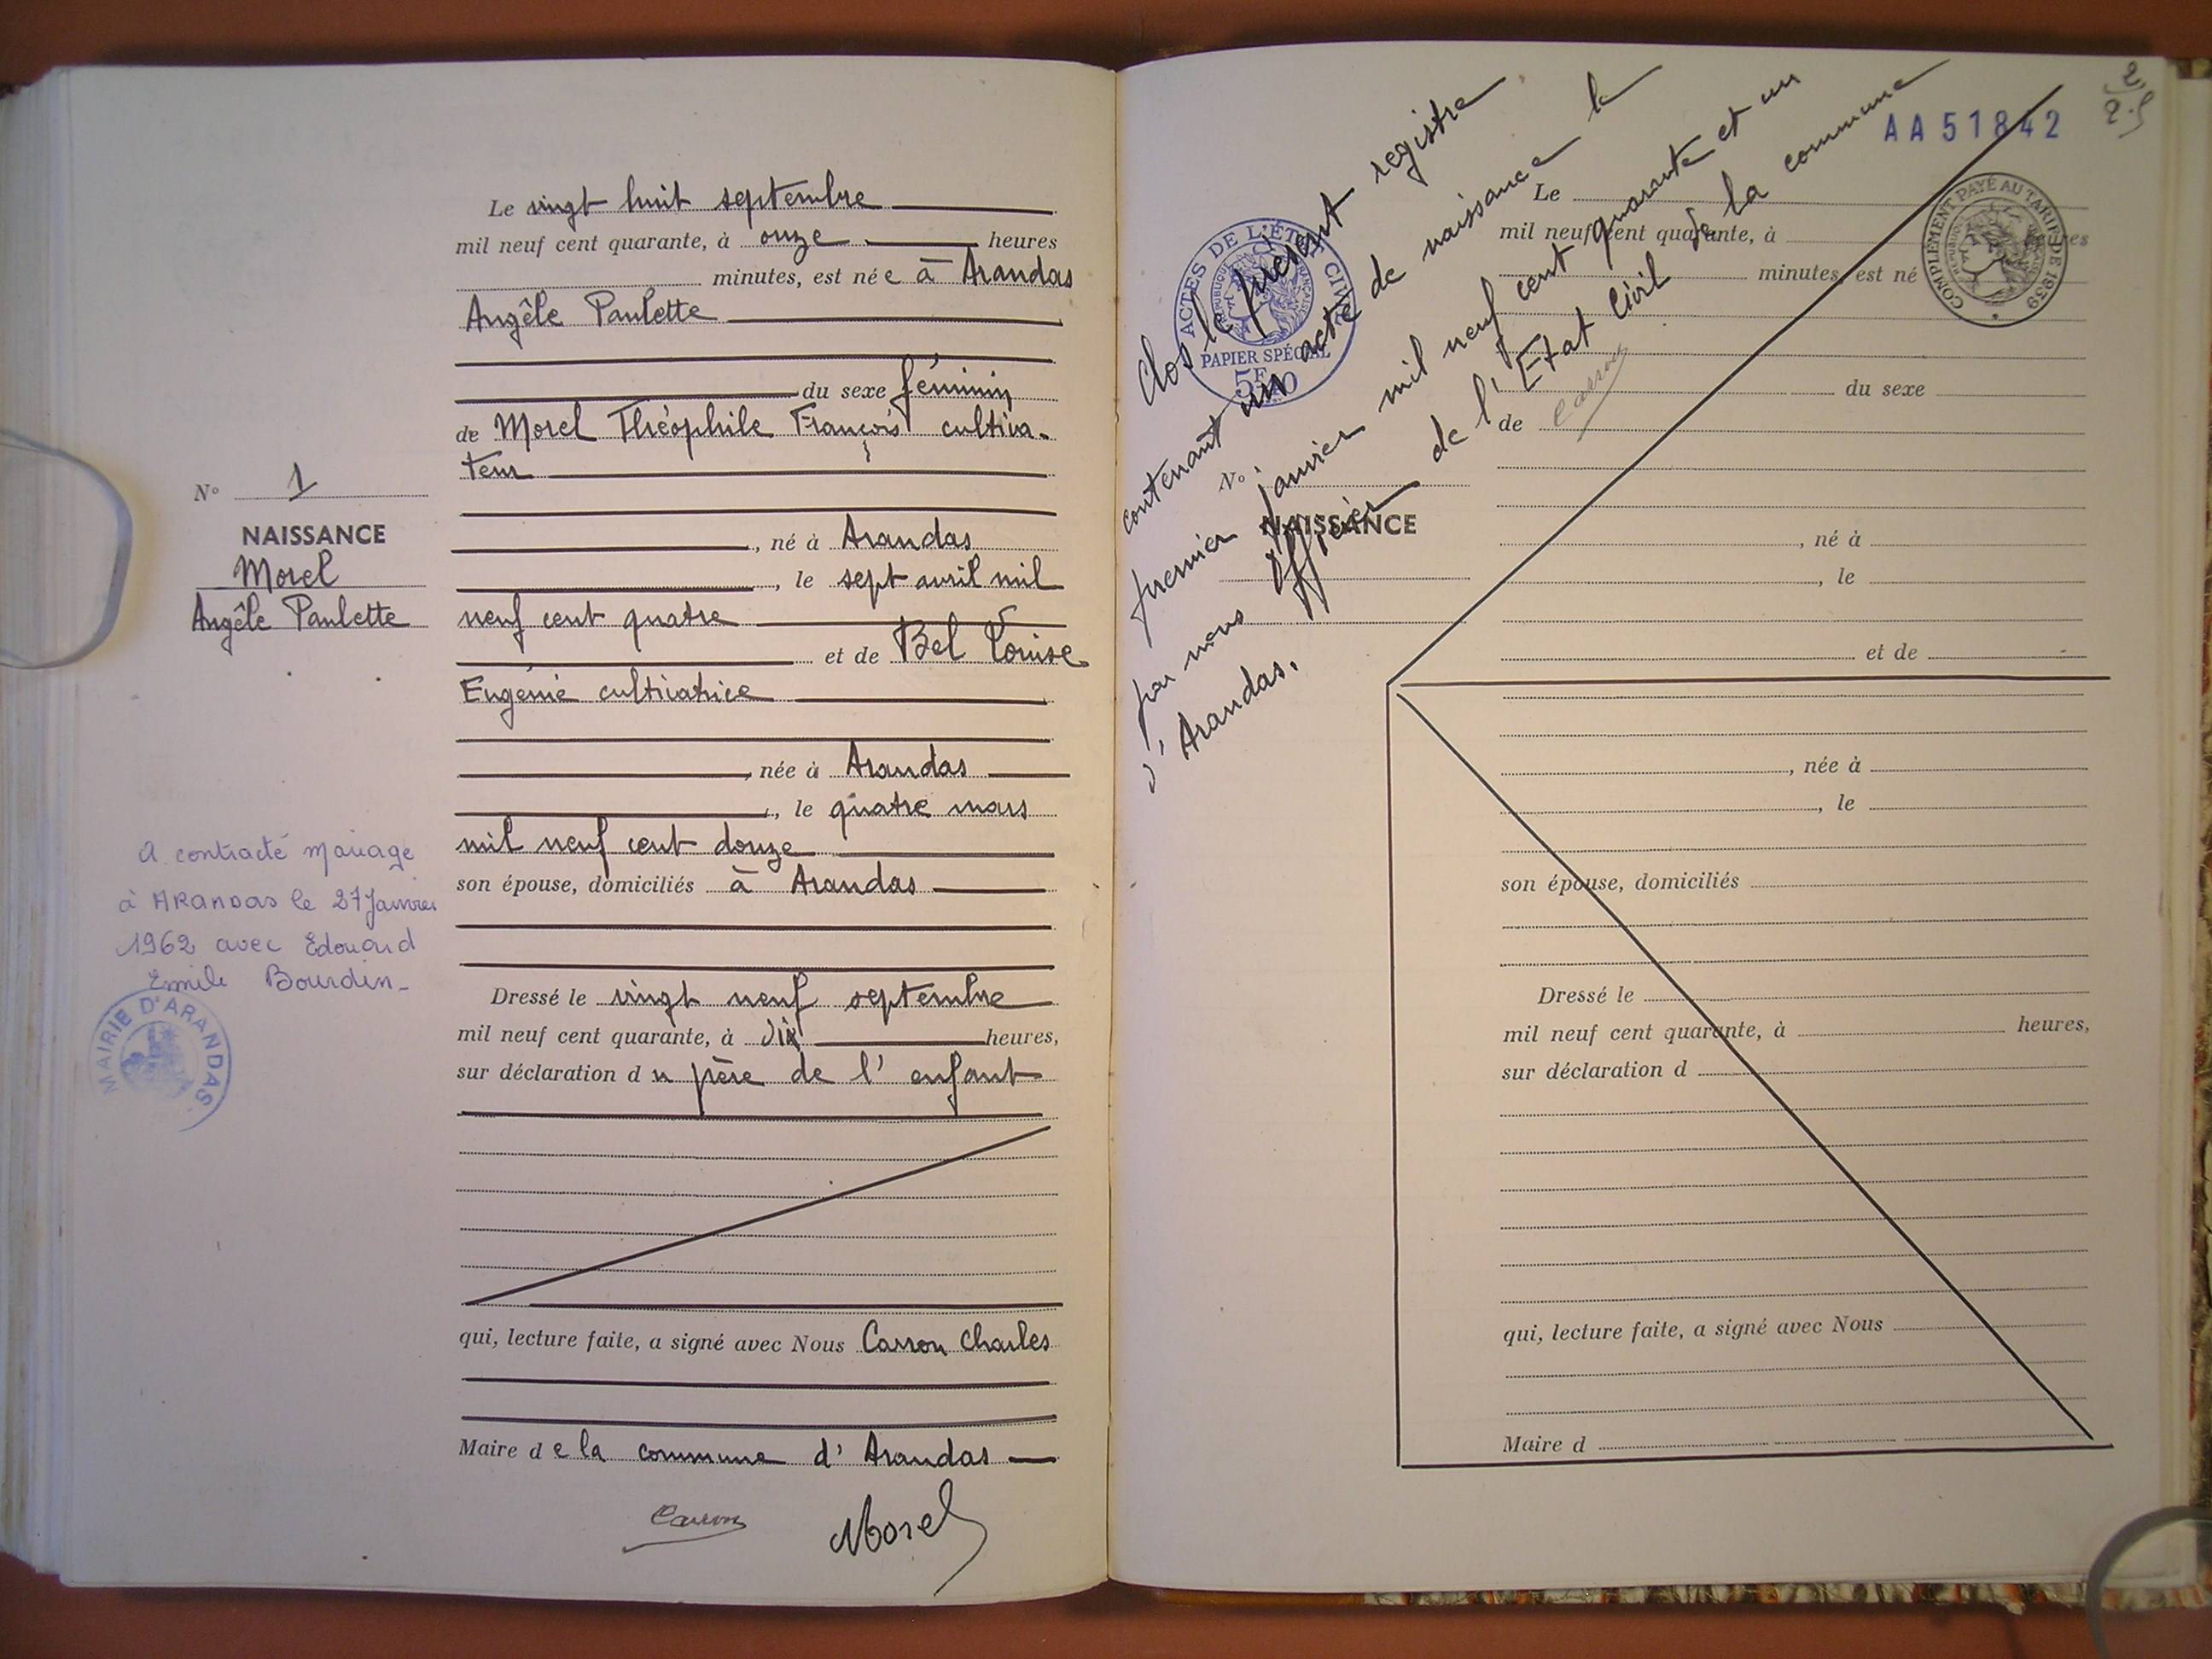 N° 1
NAISSANCE
Morel
Angèle Paulette
A contracté mariage
à ARANDAS le 27 Janvier
1962 avec Edouard
Emile Bourdin_
MAIRIE D'ARANDAS
Le vingt huit septembre
mil neuf cent quarante, à onze heures
minutes, est née à Arandas
Angèle Paulette
du sexe féminin
de Morel Théophile François cultiva-
teur
, né à Arandas
, le sept avril mil
neuf cent quatre
et de Bel Louise
Eugénie cultivatrice
, née à Arandas
, le quatre mars
mil neuf cent douze
son épouse, domiciliés à Arandas
Dressé le vingt neuf septembre
mil neuf cent quarante, à dix heures,
sur déclaration du père de l'enfant
qui, lecture faite, a signé avec Nous Carron Charles
Maire de la commune d'Arandas
Carron Morel
2
AA 51842
Clos le présent registre
contenant un acte de naissance le
premier janvier mil neuf cent quarante et un
par nous officier de l'Etat Civil de la commune
d'Arandas.
Carron
ACTES DE L'ÉTAT CIVIL
RÉPUBLIQUE FRANÇAISE
PAPIER SPÉCIAL
COMPLÉMENT PAYÉ AU TARIF DE 1939
N°
NAISSANCE
Le
mil neuf cent quarante, à heures
minutes, est né
du sexe
de
, né à
, le
et de
, née à
, le
son épouse, domiciliés
Dressé le
mil neuf cent quarante, à heures,
sur déclaration d
qui, lecture faite, a signé avec Nous
Maire d